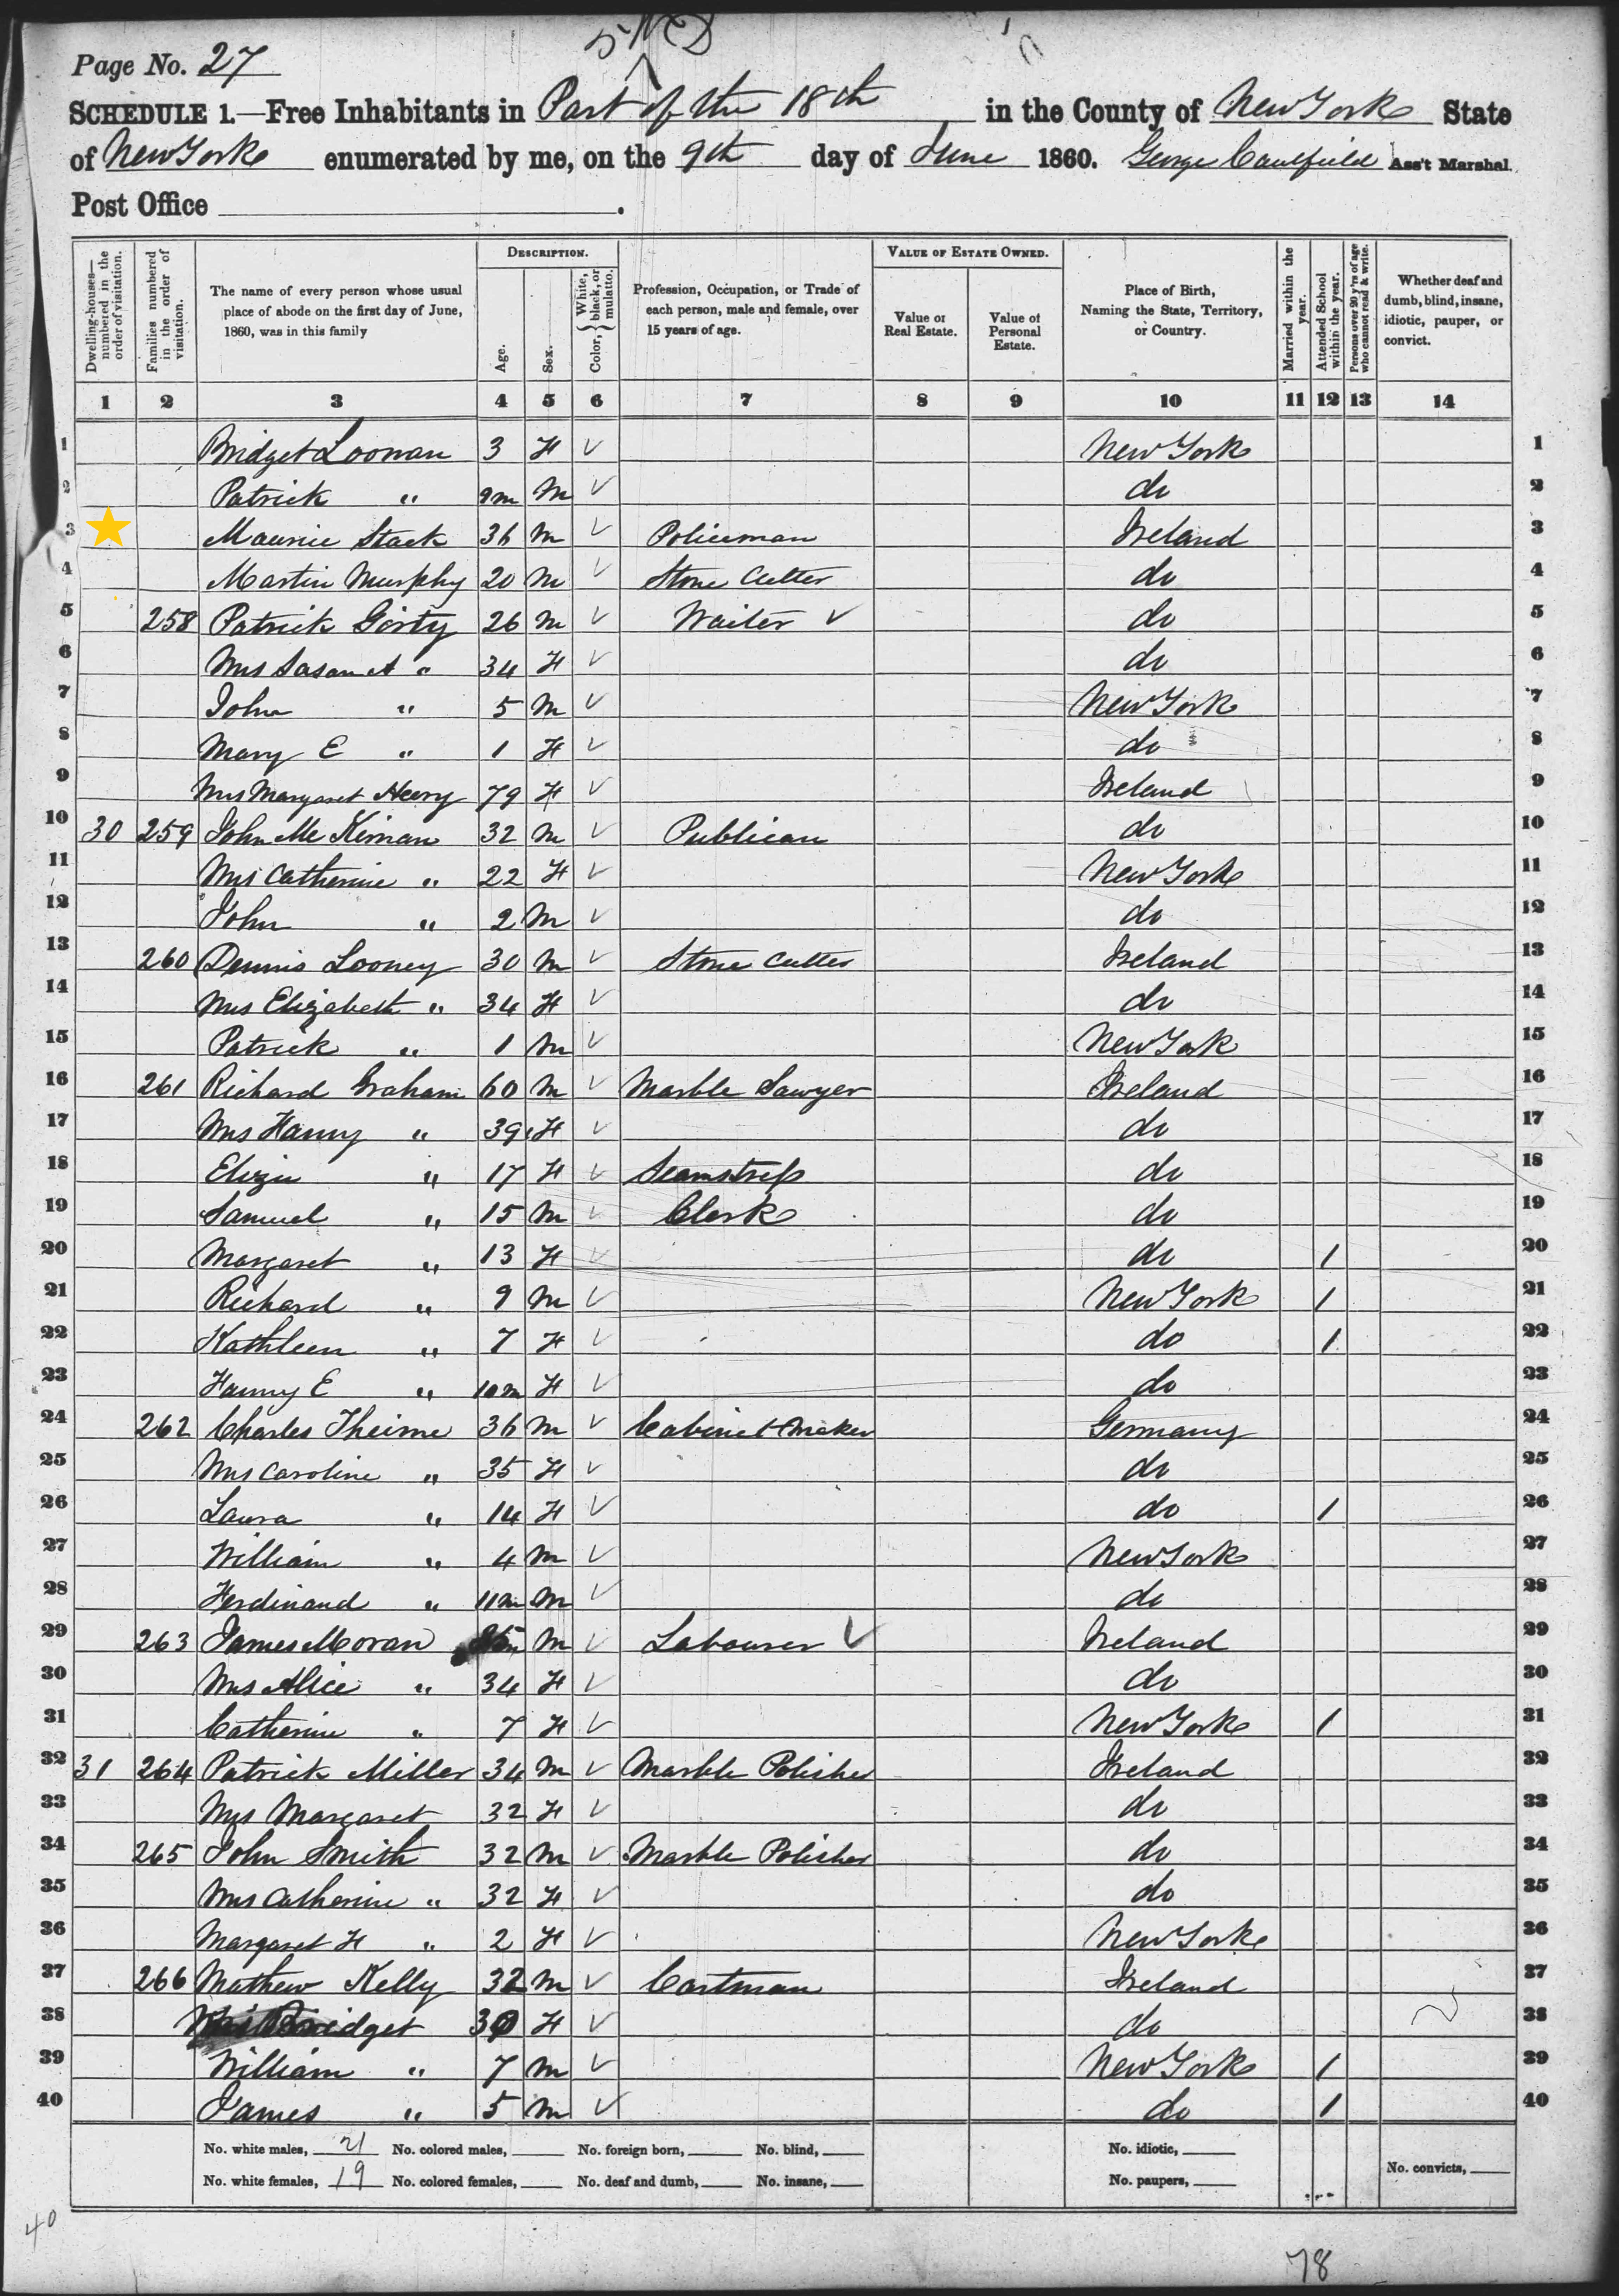 5 WD
Page No. 27
SCHEDULE 1.—Free Inhabitants in Part of the 18th in the County of New York State
of New York enumerated by me, on the 9th day of June 1860. George Caulfield Ass't Marshal.
Post Office
Dwelling-houses—numbered in the order of visitation.
Families numbered in the order of visitation.
The name of every person whose usual place of abode on the first day of June, 1860, was in this family
DESCRIPTION.
Age.
Sex.
Color, } White, black, or mulatto.
Profession, Occupation, or Trade of each person, male and female, over 15 years of age.
VALUE OF ESTATE OWNED.
Value of Real Estate.
Value of Personal Estate.
Place of Birth, Naming the State, Territory, or Country.
Married within the year.
Attended School within the year.
Persons over 20 y'rs of age who cannot read & write.
Whether deaf and dumb, blind, insane, idiotic, pauper, or convict.
1 2 3 4 5 6 7 8 9 10 11 12 13 14
1 Bridget Loonan 3 F ✓ New York 1
2 Patrick " 9m M ✓ do 2
3 Maurice Stack 36 M ✓ Policeman Ireland 3
4 Martin Murphy 20 M ✓ Stone Cutter do 4
5 258 Patrick Gorty 26 M ✓ Waiter ✓ do 5
6 Mrs Susan A " 34 F ✓ do 6
7 John " 5 M ✓ New York 7
8 Mary E " 1 F ✓ do 8
9 Mrs Margaret Heery 79 F ✓ Ireland 9
10 30 259 John Mc Kiernan 32 M ✓ Publican do 10
11 Mrs Catherine " 22 F ✓ New York 11
12 John " 2 M ✓ do 12
13 260 Dennis Looney 30 M ✓ Stone Cutter Ireland 13
14 Mrs Elizabeth " 34 F ✓ do 14
15 Patrick " 1 M ✓ New York 15
16 261 Richard Graham 60 M ✓ Marble Sawyer Ireland 16
17 Mrs Fanny " 39 F ✓ do 17
18 Eliza " 17 F ✓ Seamstress do 18
19 Samuel " 15 M ✓ Clerk do 19
20 Margaret " 13 F ✓ do 1 20
21 Richard " 9 M ✓ New York 1 21
22 Kathleen " 7 F ✓ do 1 22
23 Fanny E " 10m F ✓ do 23
24 262 Charles Theime 36 M ✓ Cabinet Maker Germany 24
25 Mrs Caroline " 35 F ✓ do 25
26 Laura " 14 F ✓ do 1 26
27 William " 4 M ✓ New York 27
28 Ferdinand " 11m M ✓ do 28
29 263 James Moran M ✓ Labourer ✓ Ireland 29
30 Mrs Alice " 34 F ✓ do 30
31 Catherine " 7 F ✓ New York 1 31
32 31 264 Patrick Miller 34 M ✓ Marble Polisher Ireland 32
33 Mrs Margaret 32 F ✓ do 33
34 265 John Smith 32 M ✓ Marble Polisher do 34
35 Mrs Catherine " 32 F ✓ do 35
36 Margaret F " 2 F ✓ New York 36
37 266 Mathew Kelly 32 M ✓ Cartman Ireland 37
38 Mrs Bridget 30 F ✓ do 38
39 William " 7 M ✓ New York 1 39
40 James " 5 M ✓ do 1 40
No. white males, 21 No. colored males, No. foreign born, No. blind, No. idiotic,
No. white females, 19 No. colored females, No. deaf and dumb, No. insane, No. paupers, No. convicts,
40
78